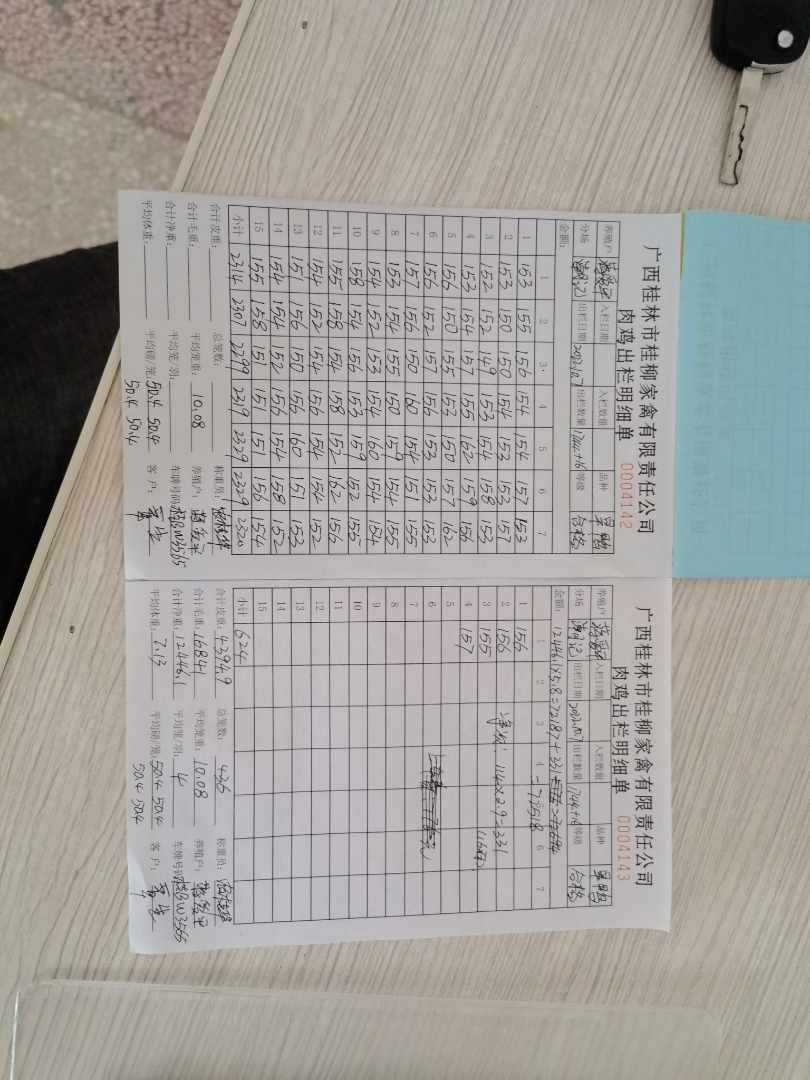 广西桂林市桂柳家禽有限责任公司
肉鸡出栏明细单 0004142
养殖户 入栏日期 入栏数量 品种
分场 出栏日期 2022.10.7 出栏数量 1744+16 等级 合格
金额:
1 2 3 4 5 6 7
1 153 155 156 154 154 157 153
2 153 150 150 154 153 153 157
3 152 152 149 153 154 158 153
4 153 154 157 155 162 159 156
5 156 150 155 153 150 157 162
6 156 152 157 156 153 153 153
7 157 156 150 160 154 151 155
8 153 154 155 150 159 154 155
9 154 152 153 154 160 154 154
10 158 154 156 153 159 152 155
11 155 158 154 158 152 162 156
12 154 152 154 156 154 154 152
13 151 156 150 156 160 151 153
14 154 154 152 156 154 158 152
15 155 158 151 151 151 156 154
小计 2314 2307 2299 2319 2329 2329 2320
合计皮重: 总笼数: 称重员:
合计毛重: 平均笼重: 10.08 养殖户:
合计净重: 平均笼/羽: 车牌号码: 桂BW3565
平均体重: 平均磅/笼: 50.4 50.4 客户:
50.4 50.4
广西桂林市桂柳家禽有限责任公司
肉鸡出栏明细单 0004143
养殖户 入栏日期 入栏数量 品种
分场 出栏日期 2022.10.7 出栏数量 1744+16 等级 合格
金额: 12446.1×5.8=72187+331
=72518
1 2 3 4 5 6 7
1 156
2 156 114×2.9=331
3 155
4 157
5
6
7
8
9
10
11
12
13
14
15
小计 624
合计皮重: 4394.9 总笼数: 436 称重员:
合计毛重: 16841 平均笼重: 10.08 养殖户:
合计净重: 12446.1 平均笼/羽: 4 车牌号码: 桂BW3565
平均体重: 7.13 平均磅/笼: 50.4 50.4 客户:
50.4 50.4